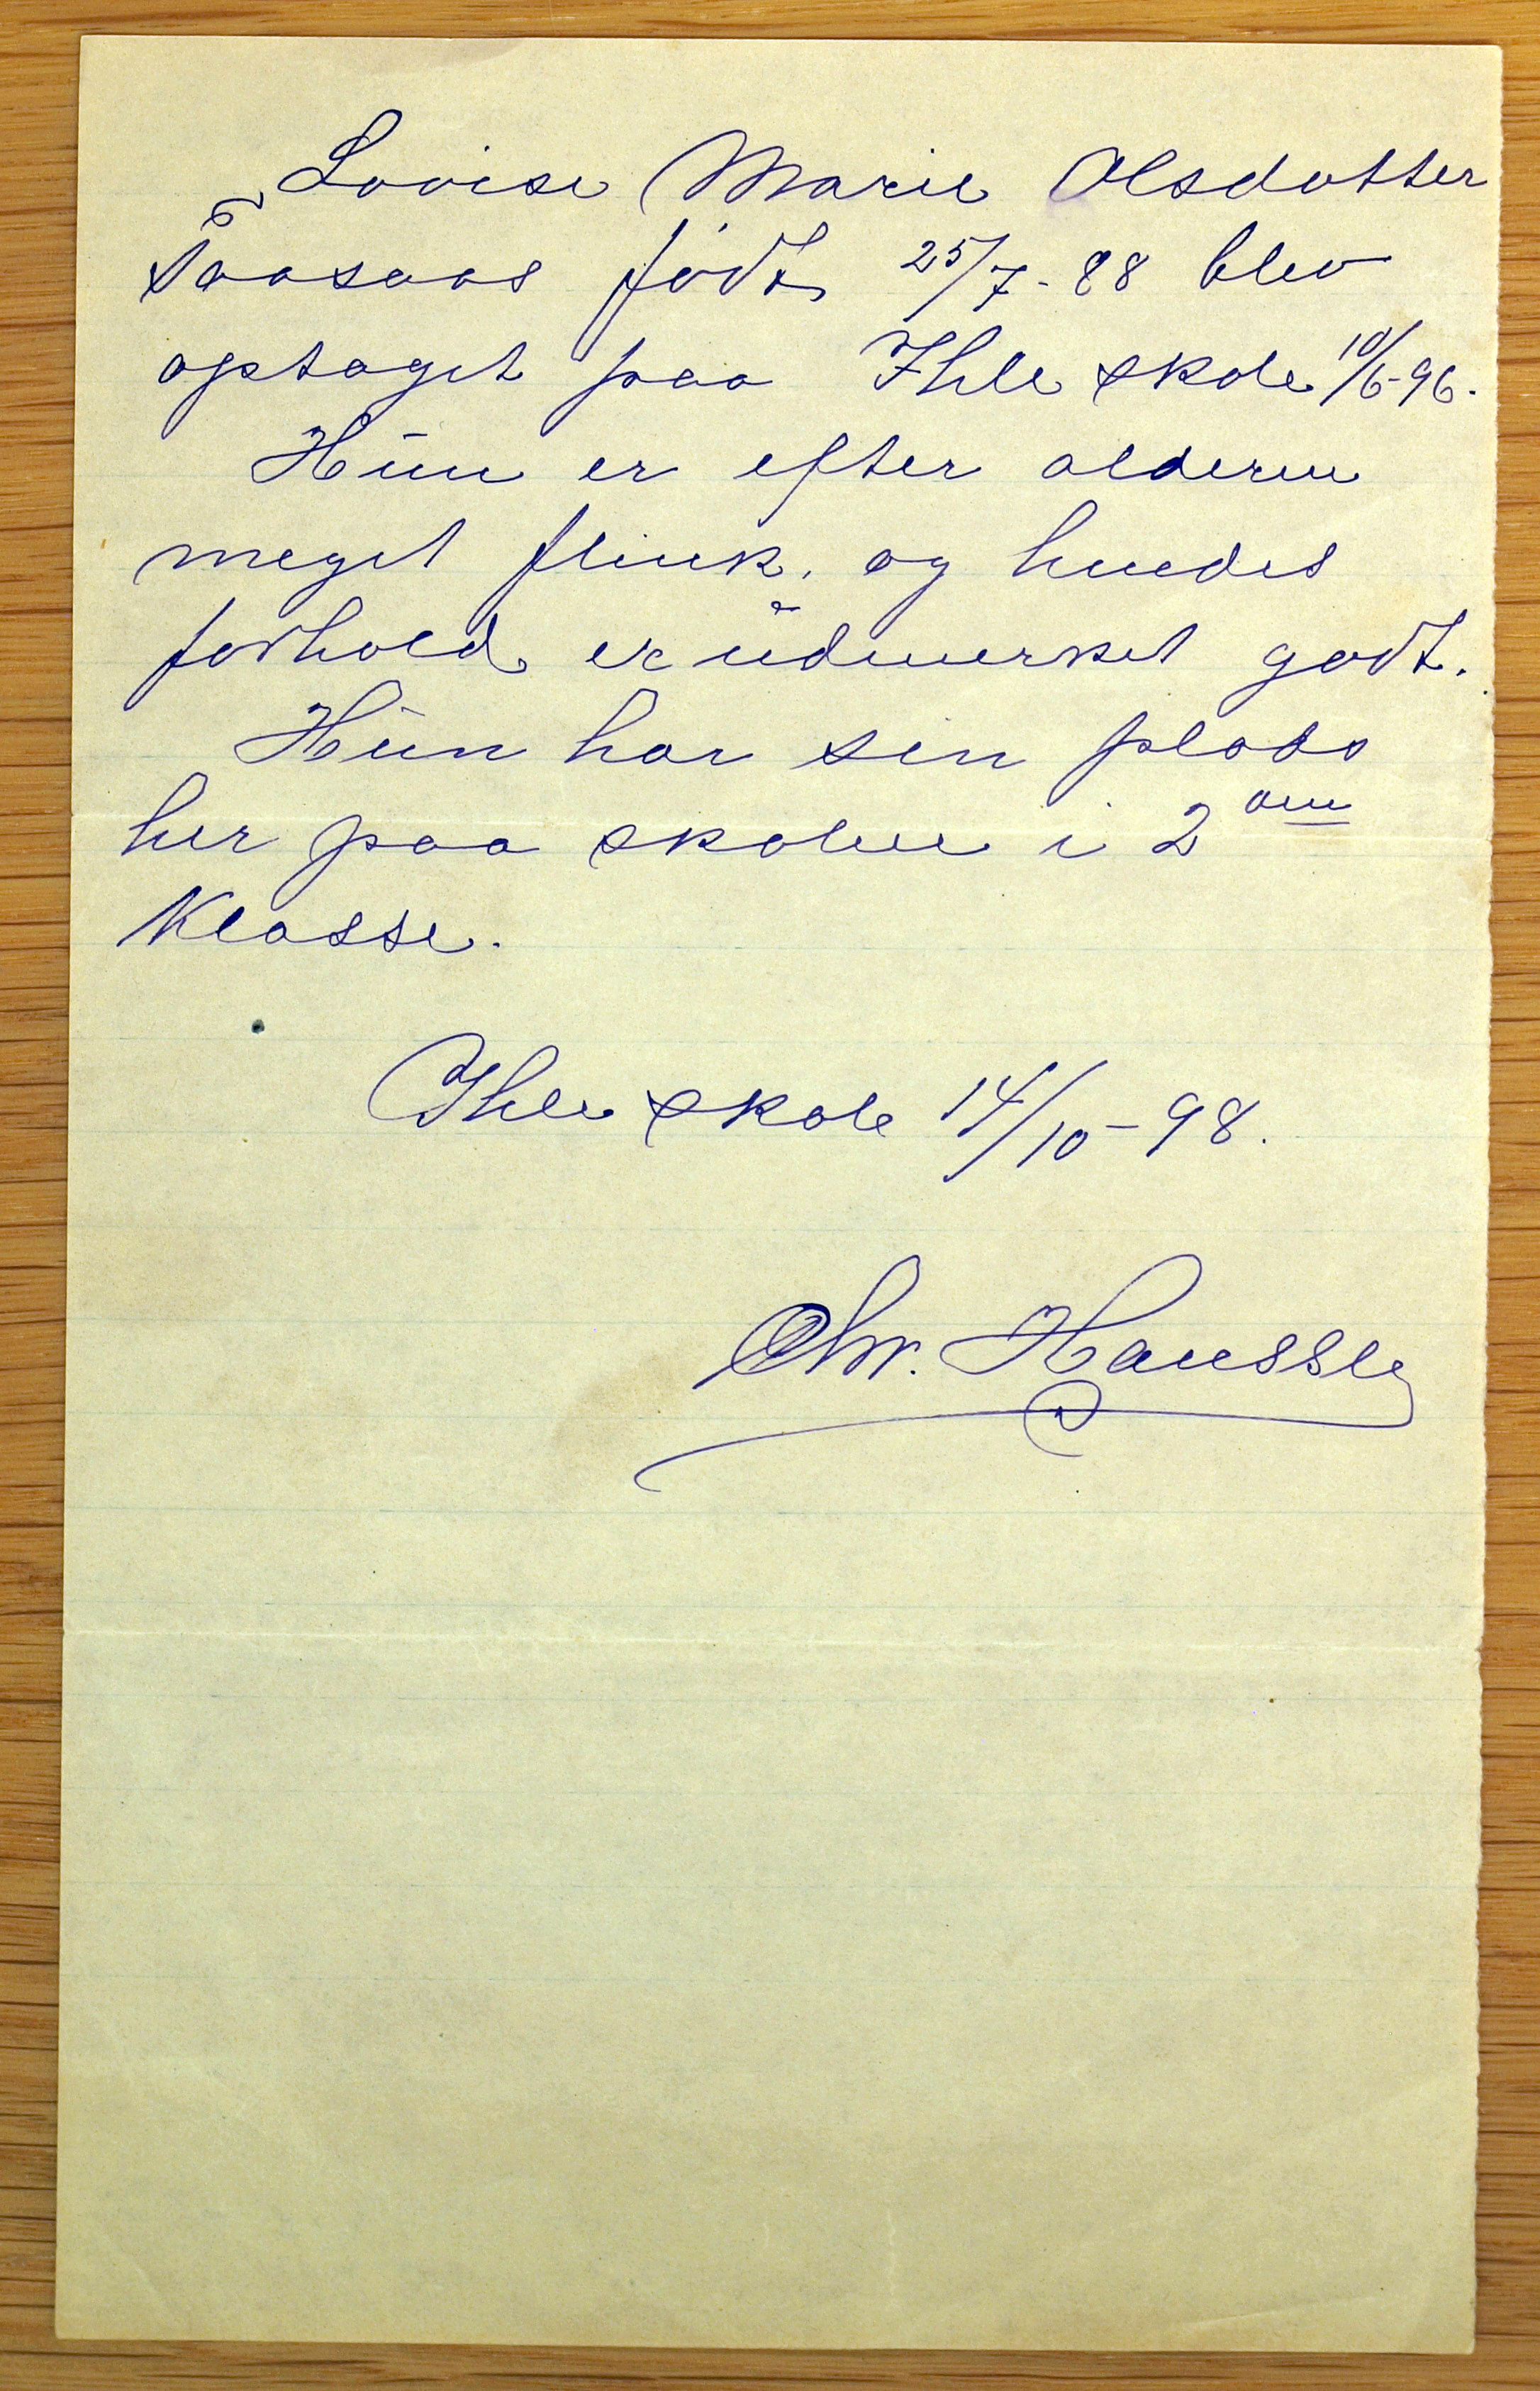 Lovise Marie Olsdatter
Taasaas født 25/7-88 blev
optaget paa Ihle skole 10/6-96.
Hun er efter alderen
meget flink, og hendes
forhold er udmerket godt.
Hun har sin plads
her paa skolen i 2den
Klasse.
Ihle skole 14/10-98.
Chr. Hanssen